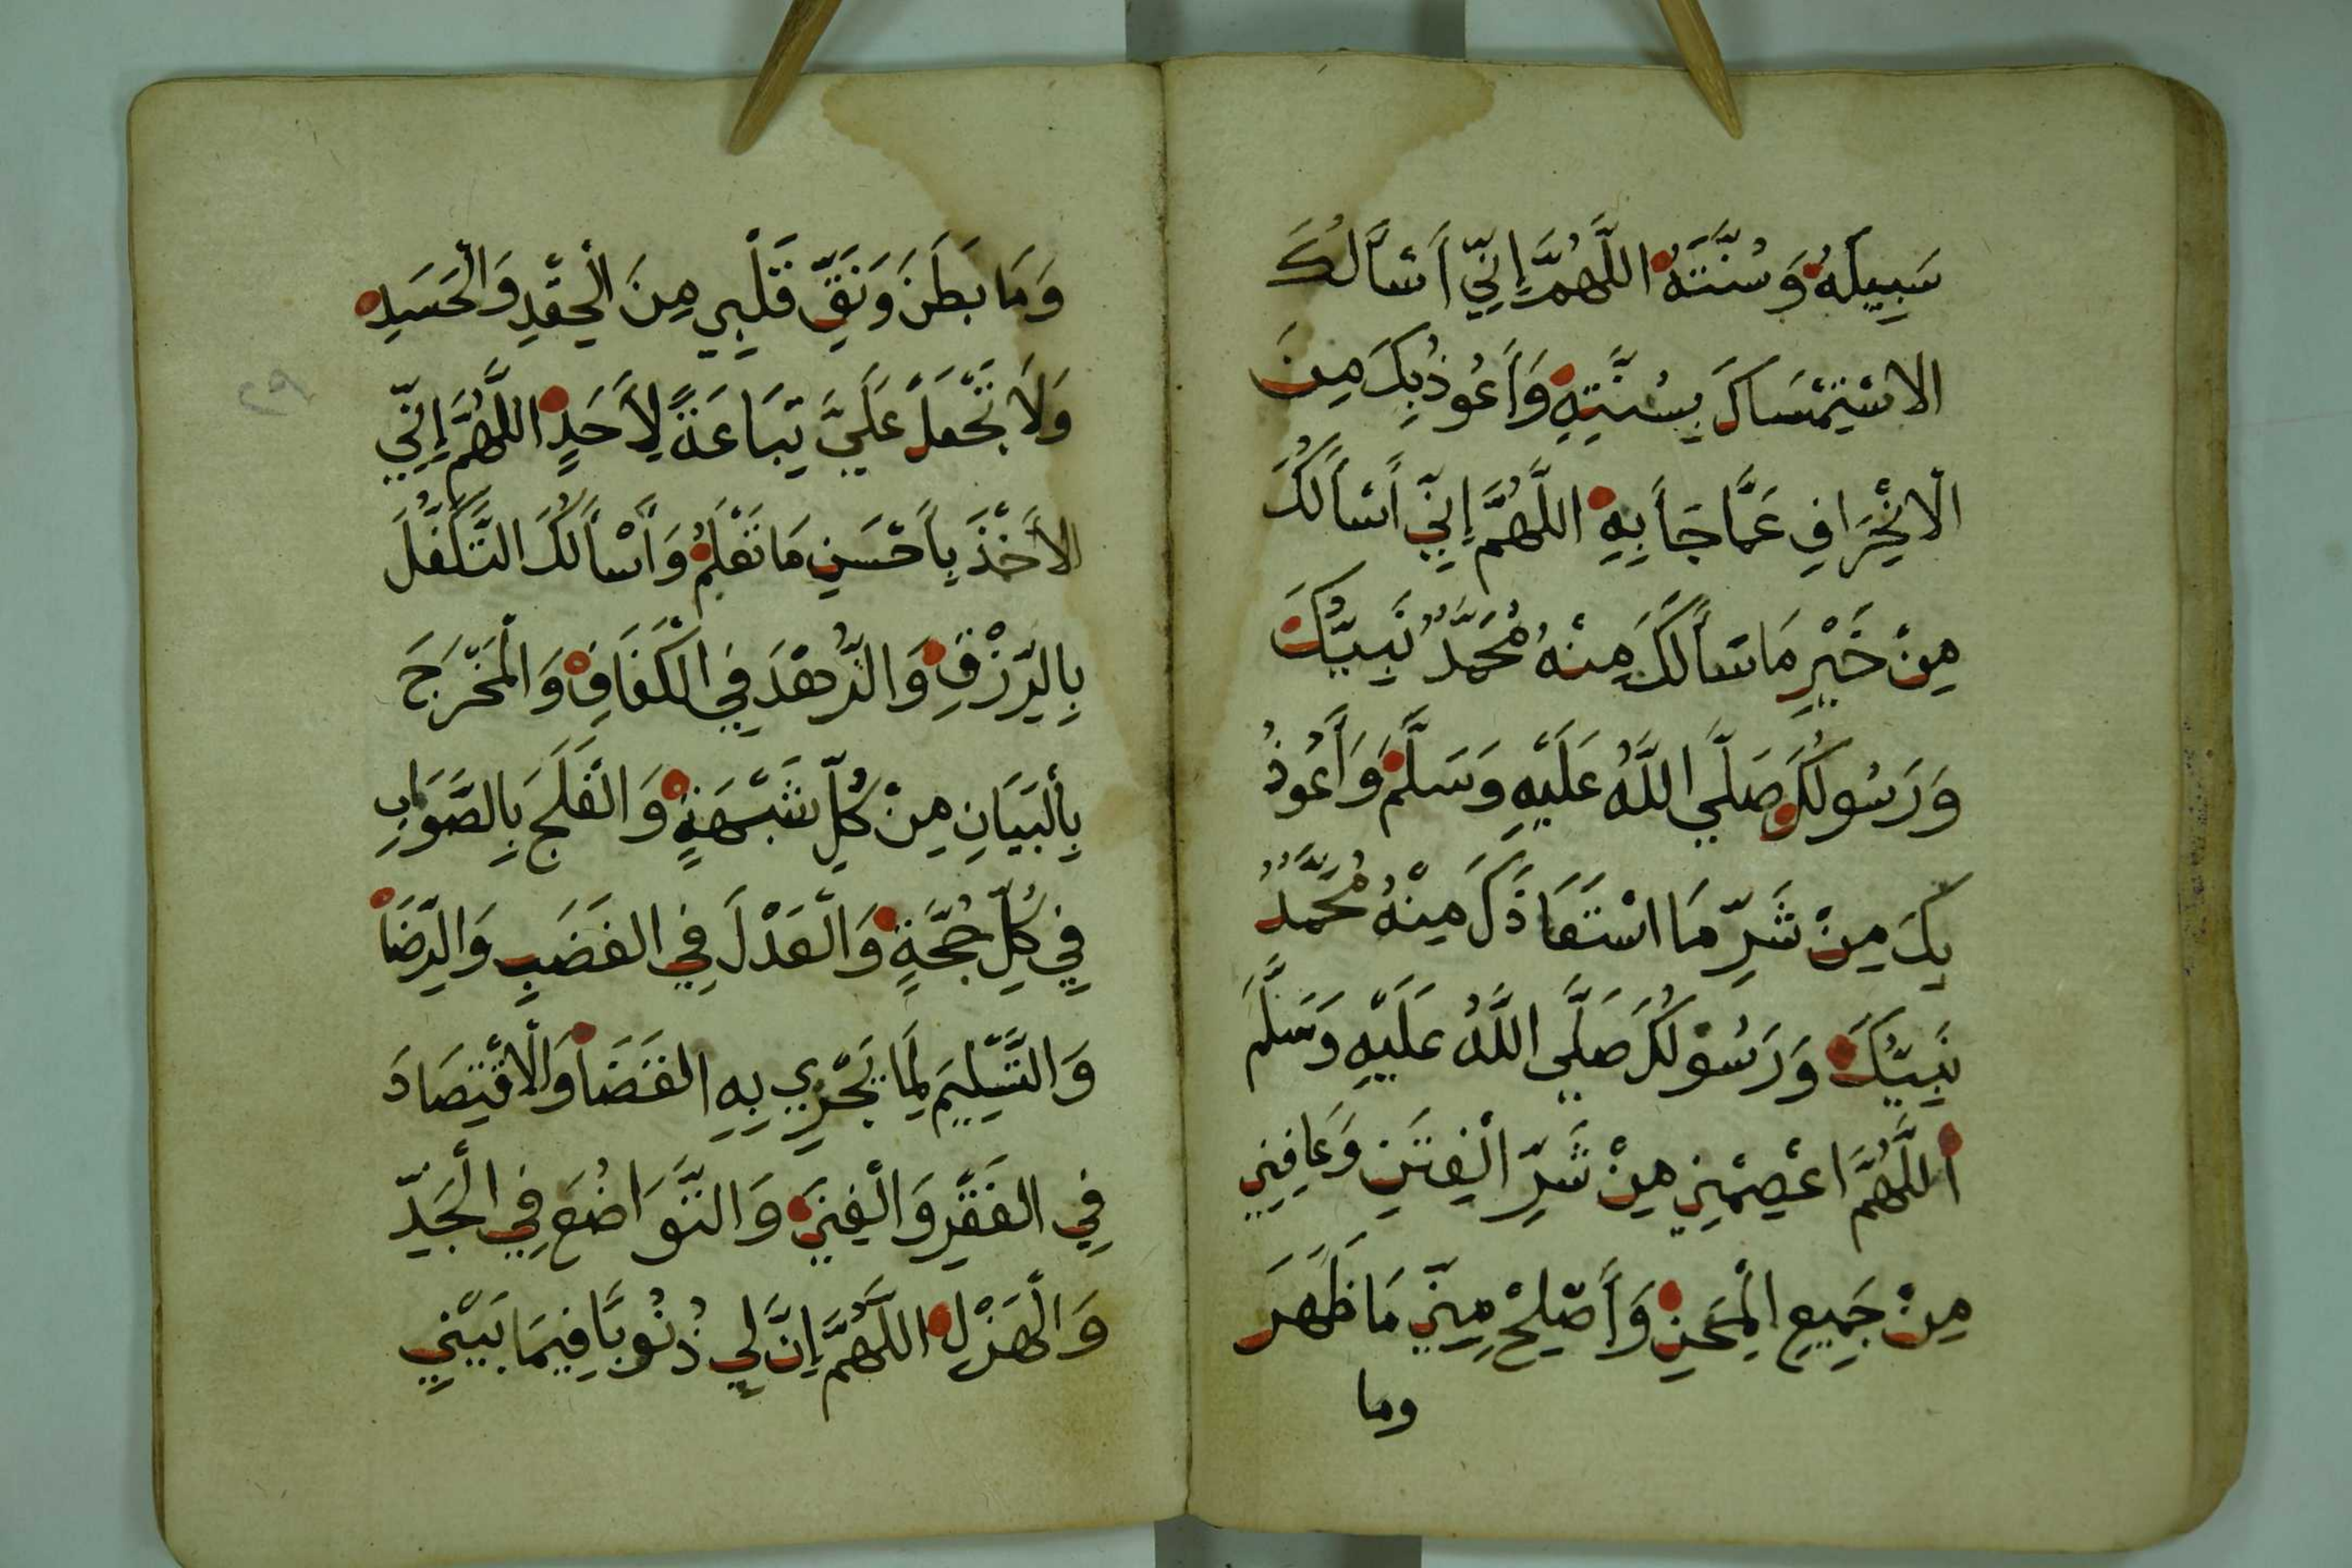 سَبِيلَهُ وَسُنَّتَهُ اللَّهُمَّ إِنِّي أَسْأَلُكَ
الاسْتِمْسَاكَ بِسُنَّتِهِ وَأَعُوذُ بِكَ مِنَ
الْانْحِرَافِ عَمَّا جَأَ بِهِ اللَّهُمَّ إِنِّي أَسْأَلُكَ
مِنْ خَيْرِ مَا سَأَلَكَ مِنْهُ مُحَمَّدٌ نَبِيُّكَ
وَرَسُولُكَ صَلَّي اللَّهُ عَلَيْهِ وَسَلَّمَ وَأَعُوذُ
بِكَ مِنْ شَرِّ مَا اسْتَعَاذَكَ مِنْهُ مُحَمَّدٌ
نَبِيُّكَ وَرَسُوْلُكَ صَلَّي اللَّهُ عَلَيْهِ وَسَلَّمَ
أللَّهُمَّ اعْصِمْنِي مِنْ شَرِّ الْفِتَنِ وَعَافِنِي
مِنْ جَمِيعِ الْمِحَنِ وَأَصْلِحْ مِنِّي مَا ظَهَرَ
وما
وَمَا بَطَنَ وَنَقِّ قَلْبِي مِنَ الْحِقْدِ وَالْحَسَدِ
وَلَا تَجْعَلْ عَلَيَّ تِبَاعَةً لِأَحَدٍ اللَّهُمَّ إِنِّي
أَسْأَلُكَ
الأَخْذَ بِأَحْسَنِ مَا تَعْلَمُ وَأَسْأَلُكَ التَّكَفُّلَ
بِالرِّزْقِ وَالزُّهْدَ فِي الْكَفَافِ وَالْمَخْرَجَ
بِألْبَيَانِ مِنْ كُلِّ شَبْهَةٍ وَالْفَلَجَ بِالصَّوَابِ
فِي كُلِّ حُجَّةٍ وَالْعَدْلَ فِي الغَضَبِ وَالرِّضَا
وَالتَّسْلِيمَ لِمَا يَجْرِي بِهِ القَضَأُ وَالْاقْتِصَادَ
فِي الفَقْرِ وَالْغِنَي وَالتَّوَاضُعَ فِي الْجَدِّ
وَالْهَزْلِ اللَّهُمَّ إِنَّ لِي ذُنُوبًا فِيمَا بَيْنِي